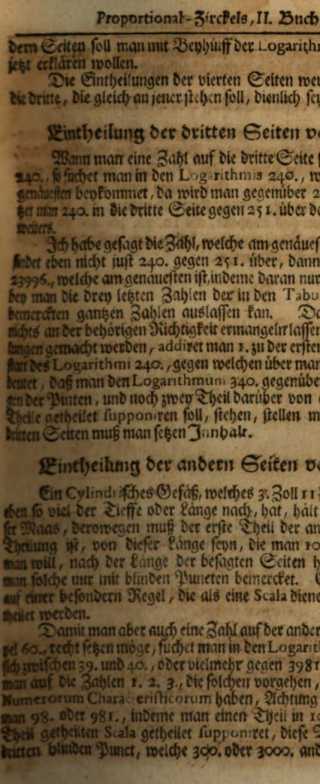 Proportional-Zirckels, II. Buch
dem Seiten soll man mit Beyhülff der Logarith
jetzt erklären wollen.
Die Eintheilungen der vierten Seiten
die dritte, die gleich an jener stehen soll, dienlich
Eintheilung der dritten Seiten
Wann man eine Zahl auf die dritte Seite
240. so suchet man in den Logarithmis 240.,
genauesten beykommet, da wird man gegenüber 2
man 240. in die dritte Seite gegen 251. über
weiters.
Ich habe gesagt die Zahl, welche am genäues
findet eben nicht just 240. gegen 251. über, dann
23996., welche am genauesten ist, indeme daran nur
bey man die drey letzten Zahlen der in den Tabu
bemerckten gantzen Zahlen auslassen kan.
nichts an der behörigen Richtigkeit ermangeln lasse
gemacht werden, addiret man 1. zu der ersten
statt des Logarithmi 240., gegen welchen über man
deutet, daß man den Logarithmum 340. gegenübe
der Puncten, und noch zwey Theil darüber von
Theile getheilet supponiren soll, stehen, stellen
dritten Seiten muß man setzen Innhalt.
Eintheilung der andern Seiten
Ein Cylindrisches Gefäß, welches 3. Zoll 11
eben so viel der Tieffe oder Länge nach, hat, hält
Maas, derowegen muß der erste Theil der an
Theilung ist, von dieser Länge seyn, die man 10
man will, nach der Länge der besagten Seiten
man solche nur mit blinden Puncten bemercket.
auf einer besondern Regel, die als eine Scala diene
theilet werden.
Damit man aber auch eine Zahl auf der ander
60., recht setzen möge, suchet man in den Logarit
sich zwischen 39. und 40., oder vielmehr gegen 3981
man auf die Zahlen 1. 2. 3., die solchen vorgehen,
Numerorum Characteristicorum haben, Achtung
man 98. oder 981., indeme man einen Theil in 10
Theil getheilten Scala getheilet supponiret, diese
dritten blinden Punct, welche 300. oder 3000. and